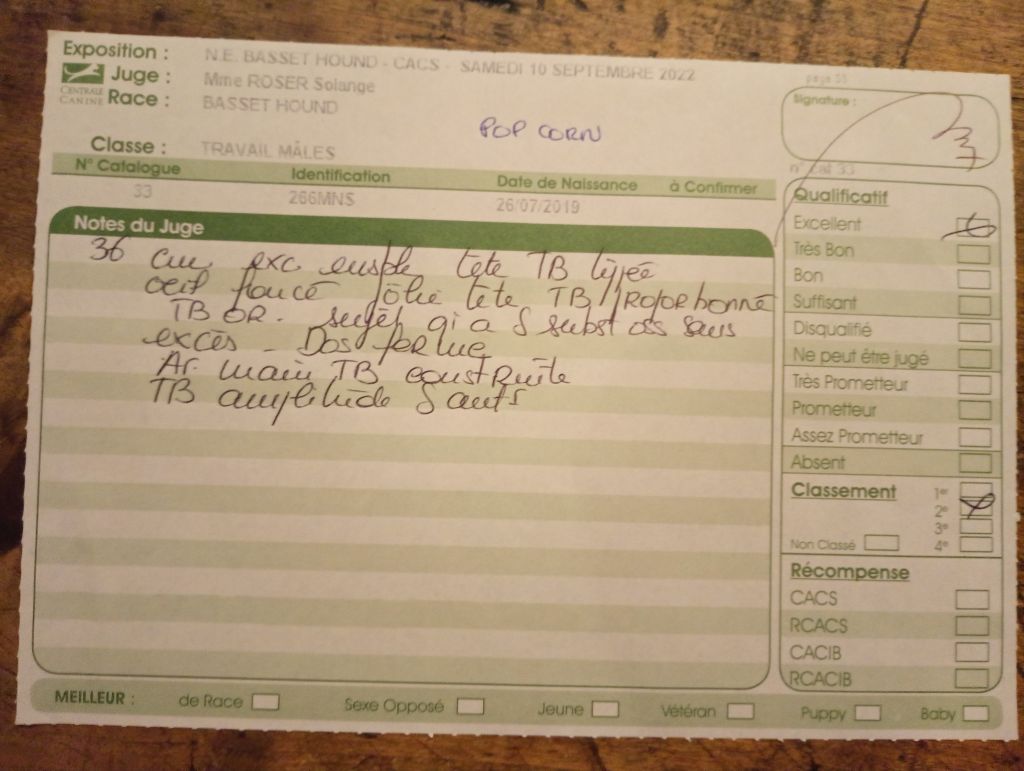 Exposition : N.E. BASSET HOUND - CACS - SAMEDI 10 SEPTEMBRE 2022
page 33
CENTRALE CANINE
Juge : Mme ROSER Solange
Race : BASSET HOUND
POP CORN
Signature :
Classe : TRAVAIL MÂLES
n° cat 33
N° Catalogue Identification Date de Naissance à Confirmer
33 266MNS 26/07/2019
Notes du Juge
36 cm exc ensble, tete TB typée
oeil foncé jolie tete TB proportionné
TB OR. sujet qi a subst oss sans
excès - Dos ferme
Ar main TB construite
TB amplitude
Qualificatif
Excellent
Très Bon
Bon
Suffisant
Disqualifié
Ne peut être jugé
Très Prometteur
Prometteur
Assez Prometteur
Absent
Classement 1er
2e
3e
Non Classé 4e
Récompense
CACS
RCACS
CACIB
RCACIB
MEILLEUR : de Race Sexe Opposé Jeune Vétéran Puppy Baby